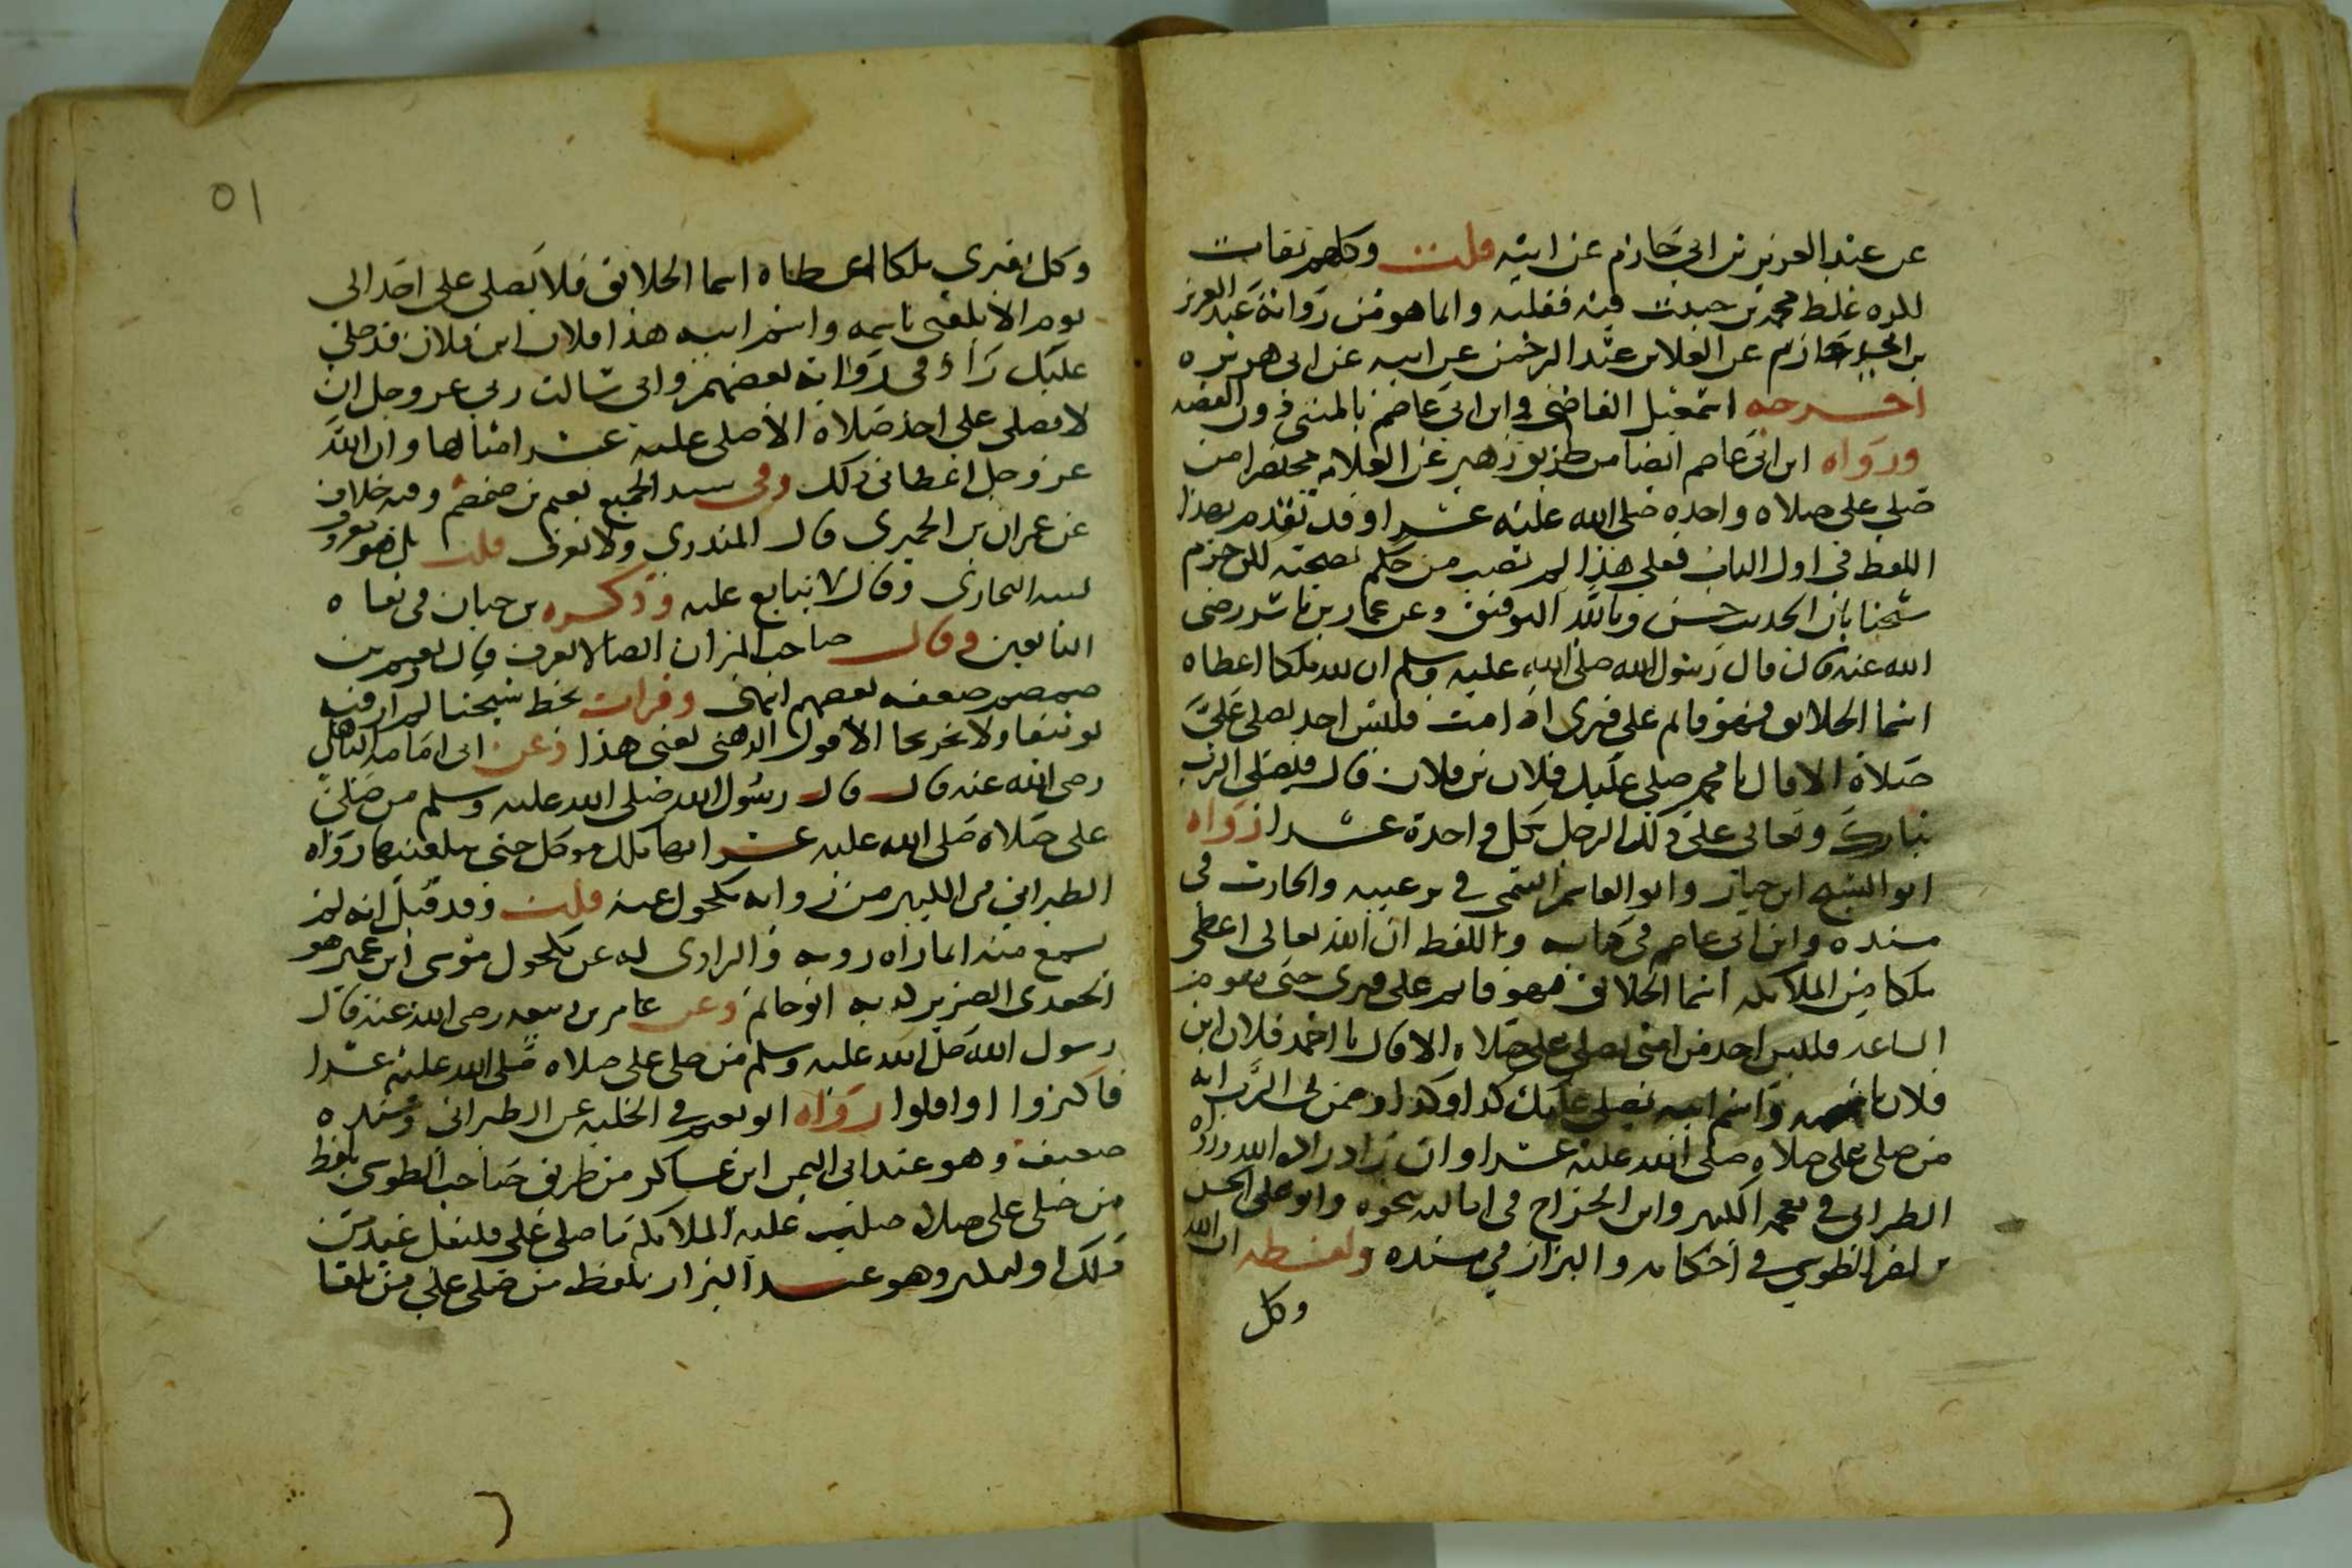 عن عبد العزيز بن ابي حازم عن ابيه قلت وكلهم ثقات
لكنه غلط محمد بن حبيب فيه فقلبه وانما هو من رواية عبد العزيز
بن ابي حازم عن العلا بن عبد الرحمن عن ابيه عن ابي هريرة
اخرجه اسمعيل القاضي وابن ابي عاصم بالمتن دون القصه
ورواه ابن ابي عاصم ايضا من طريق زهير عن العلاء مختصرا من
صلى علي صلاه واحده صلى الله عليه عشرا وقد تقدم بهذا
اللفظ في اول الباب فعلى هذا لم يصب من حكم بصحته لكن جزم
شيخنا بان الحديث حسن وبالله التوفيق وعن عمار بن ياسر رضي
الله عنه قال قال رسول الله صلى الله عليه وسلم ان لله ملكا اعطاه
اسما الخلائق فهو قائم على قبري اذا مت فليس احد يصلي علي
صلاة الا قال يا محمد صلى عليك فلان بن فلان قال فيصلي الرب
تبارك وتعالى على ذلك الرجل بكل واحدة عشرا رواه
ابو الشيخ ابن حيان وابو القاسم التيمي في ترغيبه والحارث في
مسنده وابن ابي عاصم في كتابه واللفظ ان الله تعالى اعطى
ملكا من الملائكه اسما الخلائق فهو قائم على قبري حتى تقوم
الساعه فليس احد من امتي يصلي علي صلاه الا قال يا احمد فلان ابن
فلان باسمه واسم ابيه يصلي عليك كذا وكذا وضمن لي الرب انه
من صلى علي صلاه صلى الله عليه عشرا وان زاد زاده الله ورواه
الطبراني في معجمه الكبير وابن الجراح في اماليه بنحوه وابو علي الحسن
بن نصر الطوسي في احكامه والبزار في مسنده ولفظه ان الله
وكل
٥١
وكل بقبري ملكا اعطاه اسما الخلائق فلا يصلي علي احد الى
يوم الا بلغني باسمه واسم ابيه هذا فلان ابن فلان قد صلى
عليك زاد في رواية بعضهم واني سالت ربي عز وجل ان
لا يصلي علي احد صلاه الا صلى عليه عشر امثالها وان الله
عز وجل اعطاني ذلك وفي سند الجميع نعيم بن ضمضم وفيه خلاف
عن عمران بن الحميري قال المنذري ولا يعرف قلت بل هو معروف
لينه البخاري وقال لا يتابع عليه وذكره بن حبان في ثقاه
التابعين وقال صاحب الميزان ايضا لا يعرف قال ونعيم بن
ضمضم ضعفه بعضهم انتهى وقرات بخط شيخنا لم ار فيه
توثيقا ولا تجريحا الا قول الذهبي يعني هذا وعن ابي امامه الباهلي
رضي الله عنه قال قال رسول الله صلى الله عليه وسلم من صلى
علي صلاه صلى الله عليه عشرا بها ملك موكل حتى يبلغنيها رواه
الطبراني في الكبير من رواية مكحول عنه قلت وقد قيل انه لم
يسمع منه انما راه رويه والراوي له عن مكحول موسى ابن عمير هو
الجعدي الضرير كذبه ابو حاتم وعن عامر بن ربيعه رضي الله عنه قال
رسول الله صلى الله عليه وسلم من صلى علي صلاه صلى الله عليه عشرا
فاكثروا او اقلوا رواه ابو نعيم في الحليه عن الطبراني وسنده
ضعيف وهو عند ابي اليمن ابن عساكر من طريق صاحب الطوسي بلفظ
من صلى علي صلاه صليت عليه الملائكة ما صلى علي فليقل عبد من
ذلك او ليكثر وهو عند البزار بلفظ من صلى علي من تلقا